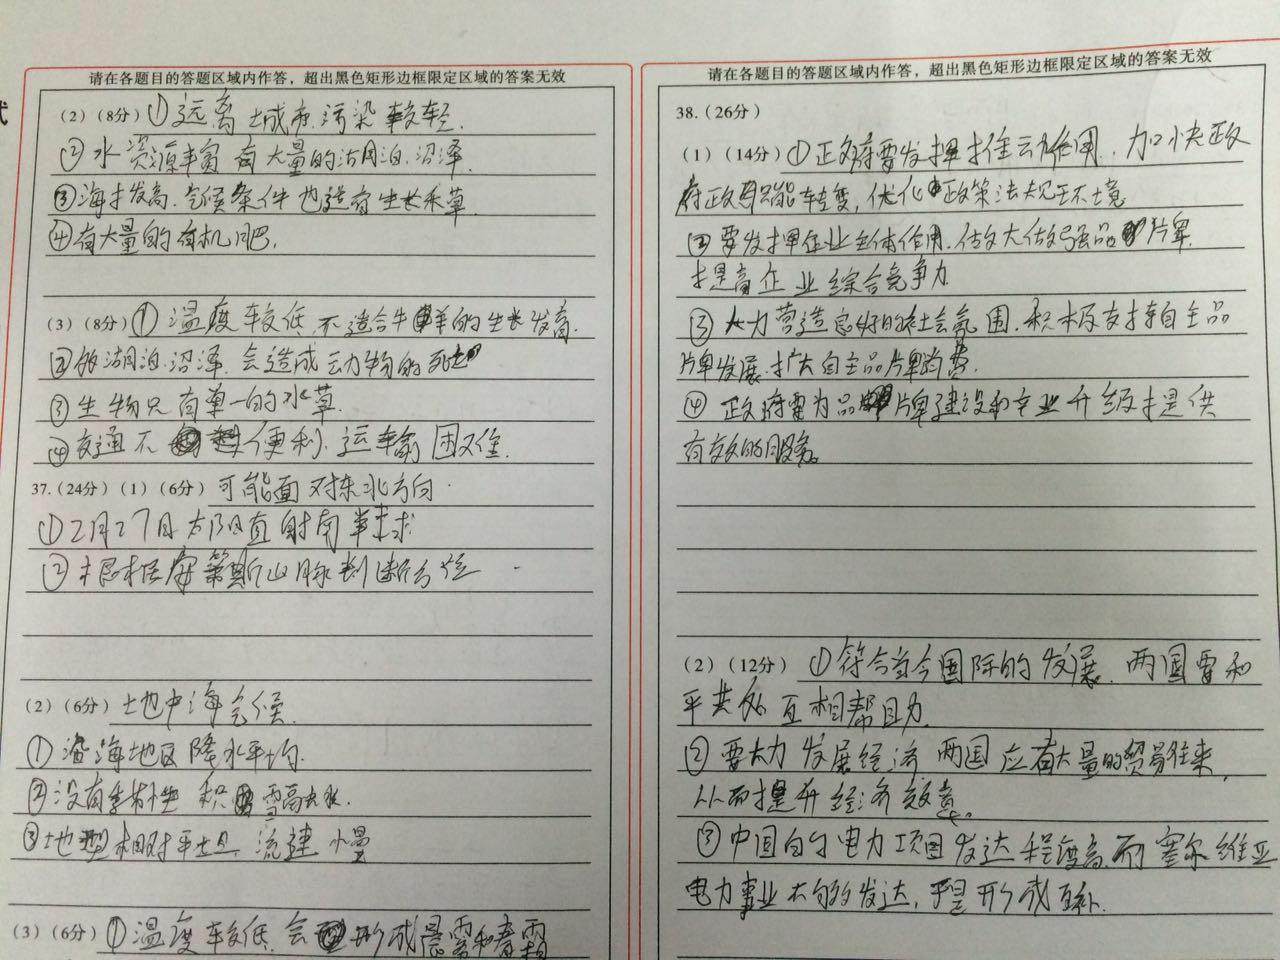 请在各题目的答题区域内作答，超出黑色矩形边框限定区域的答案无效
(2)(8分)①远离城市.污染较轻.
②水资源丰富 有大量的湖泊.沼泽.
③海拔高.气候条件也适宜生长禾草.
④有大量的有机肥.
(3)(8分)①温度较低 不适合牛羊的生长发育.
②的湖泊.沼泽.会造成动物的死
③生物只有单一的水草.
④交通不便利.运输困难.
37.(24分)(1)(6分)可能面对东北方向.
①2月27日太阳直射南半球
②根据安第斯山脉判断方位
(2)(6分)地中海气候.
①沿海地区降水平均.
②没有季节性积雪融水.
③地型相对平坦 流速慢
(3)(6分)①温度较低.会形成晨雾和春霜
请在各题目的答题区域内作答，超出黑色矩形边框限定区域的答案无效
38.(26分)
(1)(14分)①政府要发挥推动作用.加快政
府政职能转变,优化政策法规环境
②要发挥企业主体作用.做大做强品牌.
提高企业综合竞争力
③大力营造良好的社会氛围.积极支持自主品
牌发展.扩大自主品牌消费.
④政府需为品牌建设和产业升级提供
有效的服务。
(2)(12分)①符合当今国际的发展.两国要和
平共处互相帮助.
②要大力发展经济 两国应有大量的贸易往来,
从而提升经济效意。
③中国的电力项目发达程度高.而塞尔维亚
电力事业不够发达,于是形成互补.